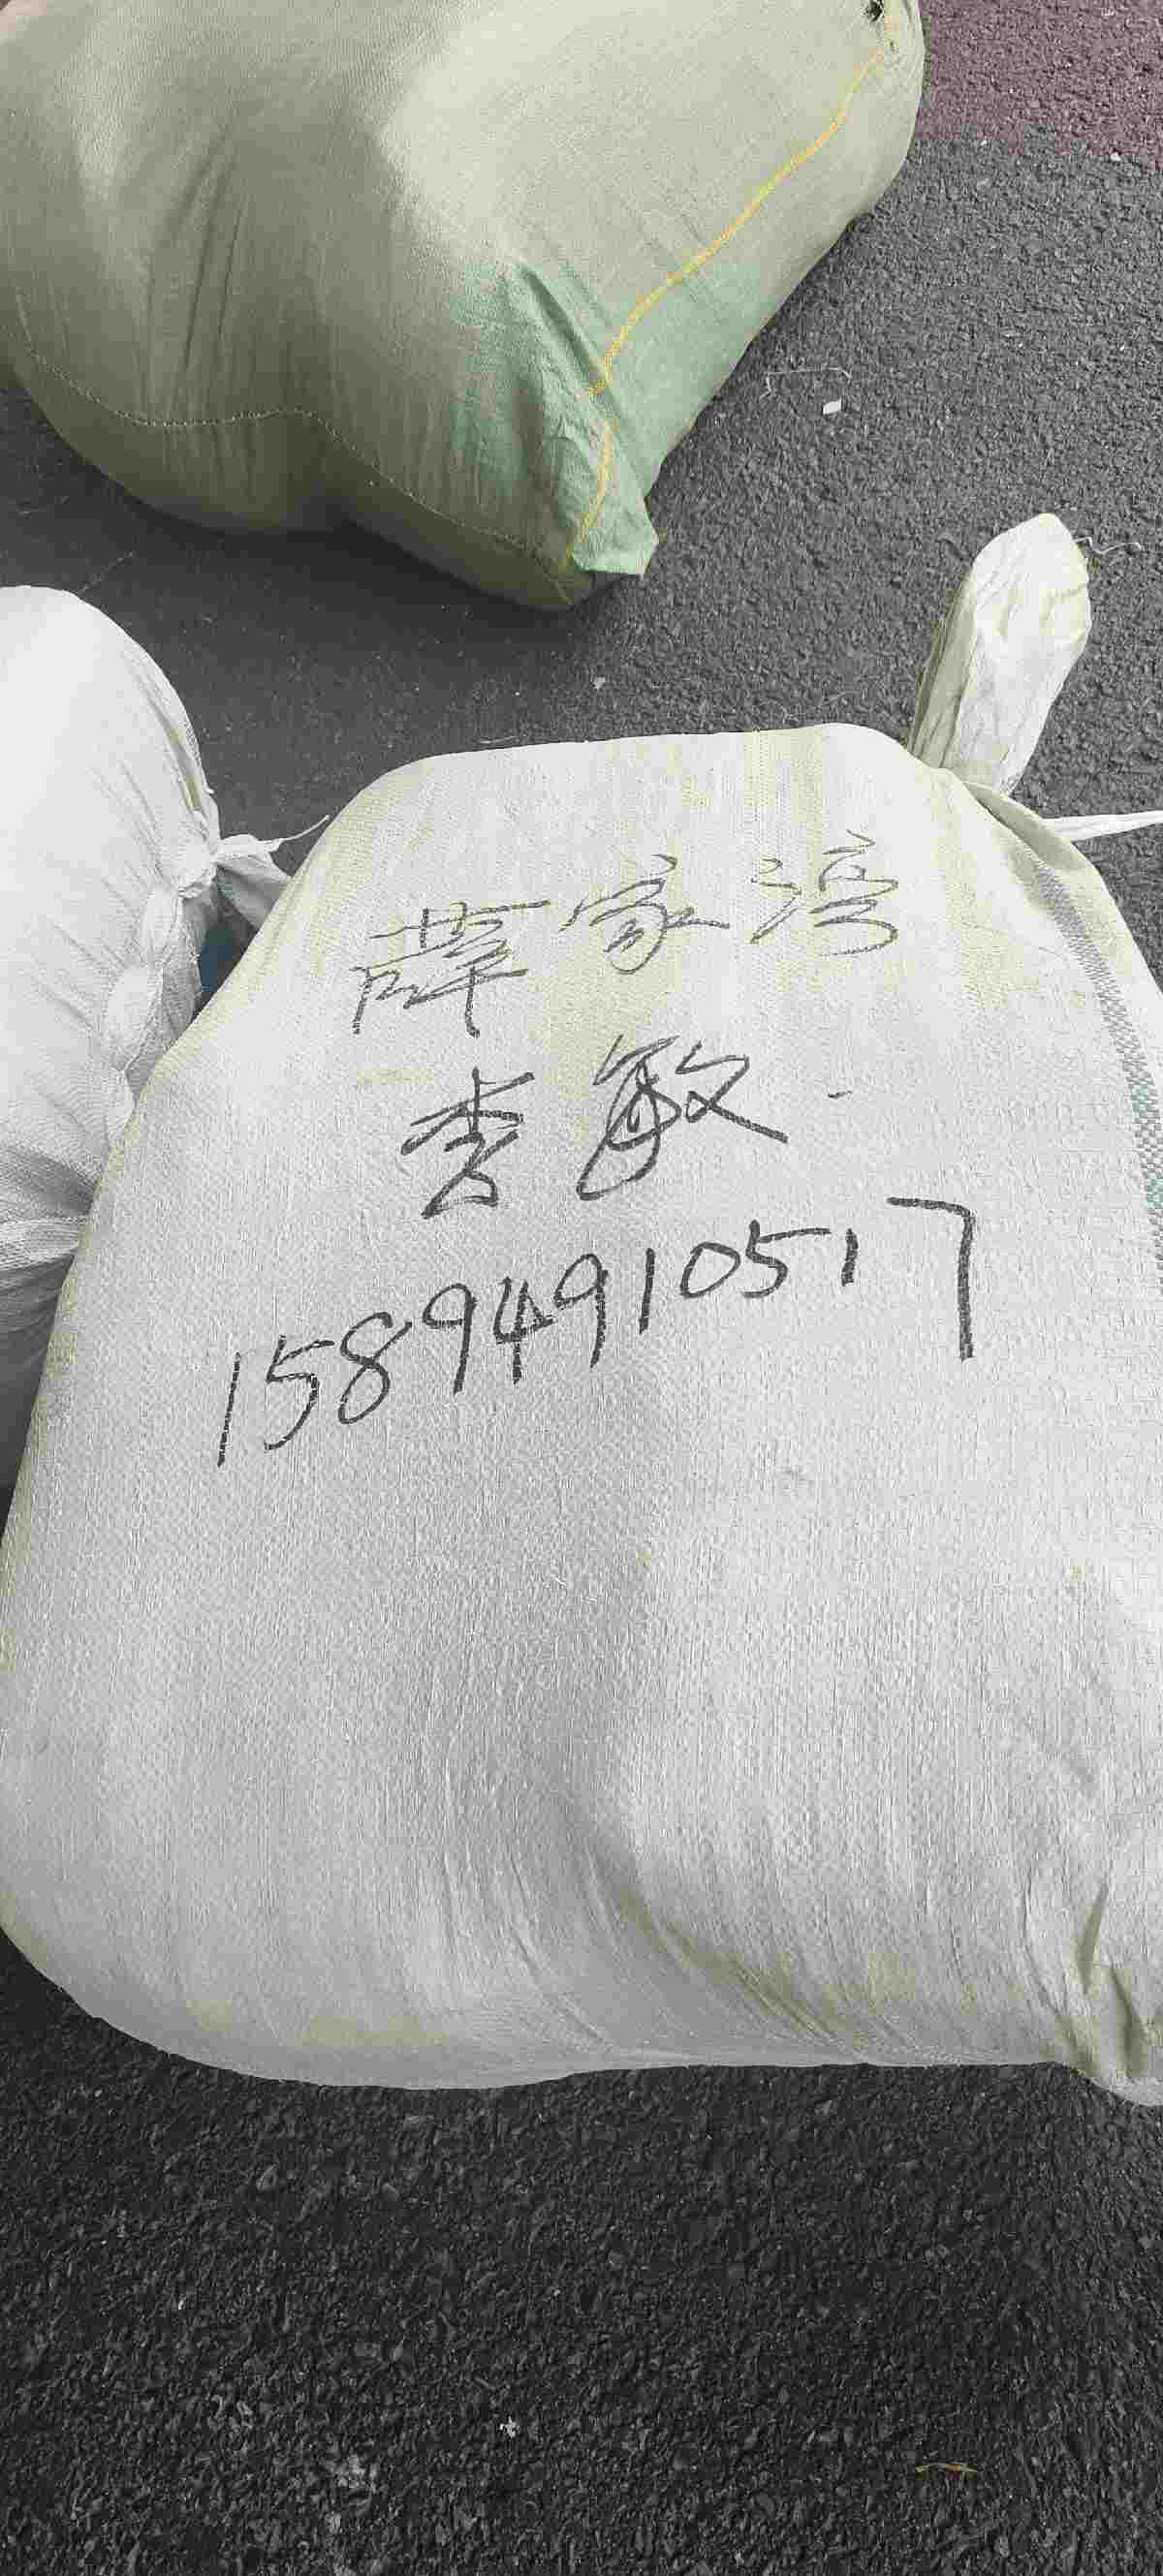 薛家湾
李敏
15894910517